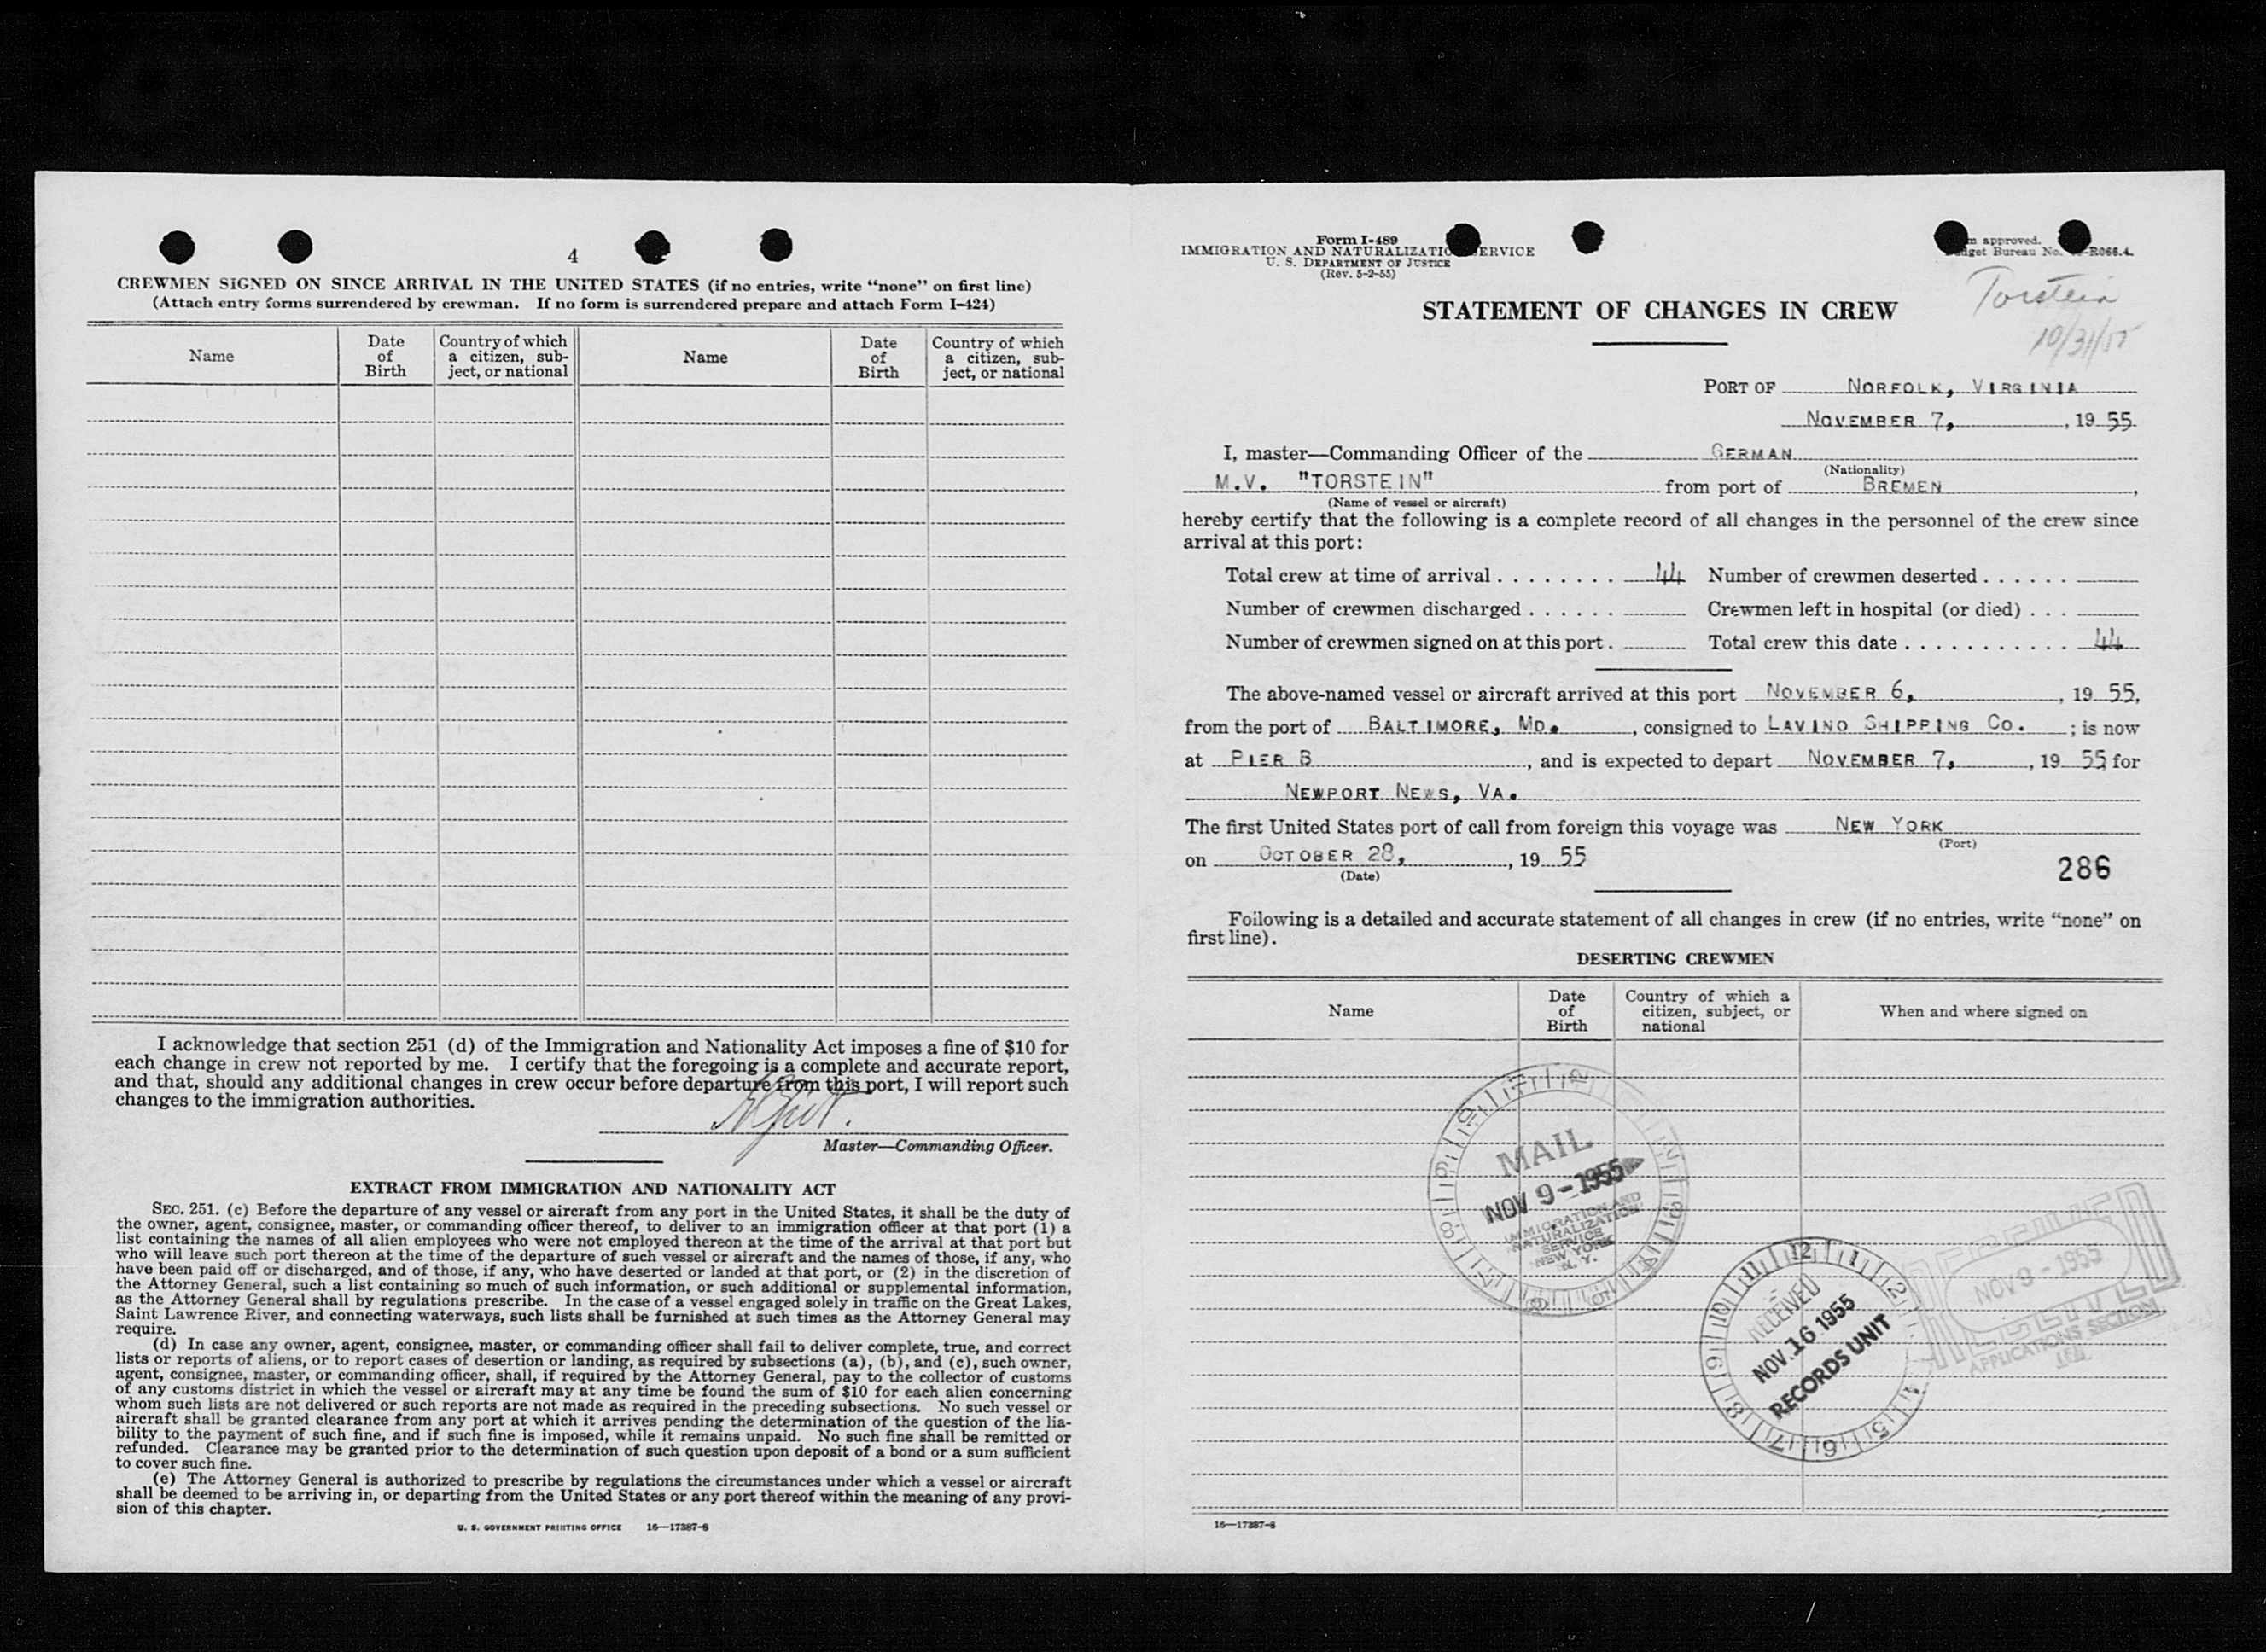 4
CREWMEN SIGNED ON SINCE ARRIVAL IN THE UNITED STATES (if no entries, write “none” on first line)
(Attach entry forms surrendered by crewman. If no form is surrendered prepare and attach Form I-424)
Name
Date of Birth
Country of which a citizen, subject, or national
Name
Date of Birth
Country of which a citizen, subject, or national
I acknowledge that section 251 (d) of the Immigration and Nationality Act imposes a fine of $10 for
each change in crew not reported by me. I certify that the foregoing is a complete and accurate report,
and that, should any additional changes in crew occur before departure from this port, I will report such
changes to the immigration authorities.
Master—Commanding Officer.
EXTRACT FROM IMMIGRATION AND NATIONALITY ACT
SEC. 251. (c) Before the departure of any vessel or aircraft from any port in the United States, it shall be the duty of
the owner, agent, consignee, master, or commanding officer thereof, to deliver to an immigration officer at that port (1) a
list containing the names of all alien employees who were not employed thereon at the time of the arrival at that port but
who will leave such port thereon at the time of the departure of such vessel or aircraft and the names of those, if any, who
have been paid off or discharged, and of those, if any, who have deserted or landed at that port, or (2) in the discretion of
the Attorney General, such a list containing so much of such information, or such additional or supplemental information,
as the Attorney General shall by regulations prescribe. In the case of a vessel engaged solely in traffic on the Great Lakes,
Saint Lawrence River, and connecting waterways, such lists shall be furnished at such times as the Attorney General may
require.
(d) In case any owner, agent, consignee, master, or commanding officer shall fail to deliver complete, true, and correct
lists or reports of aliens, or to report cases of desertion or landing, as required by subsections (a), (b), and (c), such owner,
agent, consignee, master, or commanding officer, shall, if required by the Attorney General, pay to the collector of customs
of any customs district in which the vessel or aircraft may at any time be found the sum of $10 for each alien concerning
whom such lists are not delivered or such reports are not made as required in the preceding subsections. No such vessel or
aircraft shall be granted clearance from any port at which it arrives pending the determination of the question of the lia-
bility to the payment of such fine, and if such fine is imposed, while it remains unpaid. No such fine shall be remitted or
refunded. Clearance may be granted prior to the determination of such question upon deposit of a bond or a sum sufficient
to cover such fine.
(e) The Attorney General is authorized to prescribe by regulations the circumstances under which a vessel or aircraft
shall be deemed to be arriving in, or departing from the United States or any port thereof within the meaning of any provi-
sion of this chapter.
U. S. GOVERNMENT PRINTING OFFICE 16—17387-8
Form I-489
IMMIGRATION AND NATURALIZATIO ERVICE
U. S. DEPARTMENT OF JUSTICE
(Rev. 5-2-55)
m approved.
dget Bureau No. -R066.4.
Torstein
10/31/55
STATEMENT OF CHANGES IN CREW
PORT OF NORFOLK, VIRGINIA
NOVEMBER 7, , 19 55
I, master—Commanding Officer of the GERMAN
(Nationality)
M.V. "TORSTEIN" from port of BREMEN ,
(Name of vessel or aircraft)
hereby certify that the following is a complete record of all changes in the personnel of the crew since
arrival at this port:
Total crew at time of arrival . . . . . . . . 44 Number of crewmen deserted . . . . . .
Number of crewmen discharged . . . . . . Crewmen left in hospital (or died) . . .
Number of crewmen signed on at this port . Total crew this date . . . . . . . . . . . 44
The above-named vessel or aircraft arrived at this port NOVEMBER 6, , 19 55,
from the port of BALTIMORE, MD. , consigned to LAVINO SHIPPING CO. ; is now
at PIER B , and is expected to depart NOVEMBER 7, , 19 55 for
NEWPORT NEWS, VA.
The first United States port of call from foreign this voyage was NEW YORK
(Port)
on OCTOBER 28, , 19 55
(Date)
286
Following is a detailed and accurate statement of all changes in crew (if no entries, write “none” on
first line).
DESERTING CREWMEN
Name
Date of Birth
Country of which a citizen, subject, or national
When and where signed on
MAIL
NOV 9 - 1955
IMMIGRATION AND
NATURALIZATION
SERVICE
NEW YORK
N. Y.
RECEIVED
NOV. 16 1955
RECORDS UNIT
NOV 9 - 1955
APPLICATIONS SECTION
16—17387-8